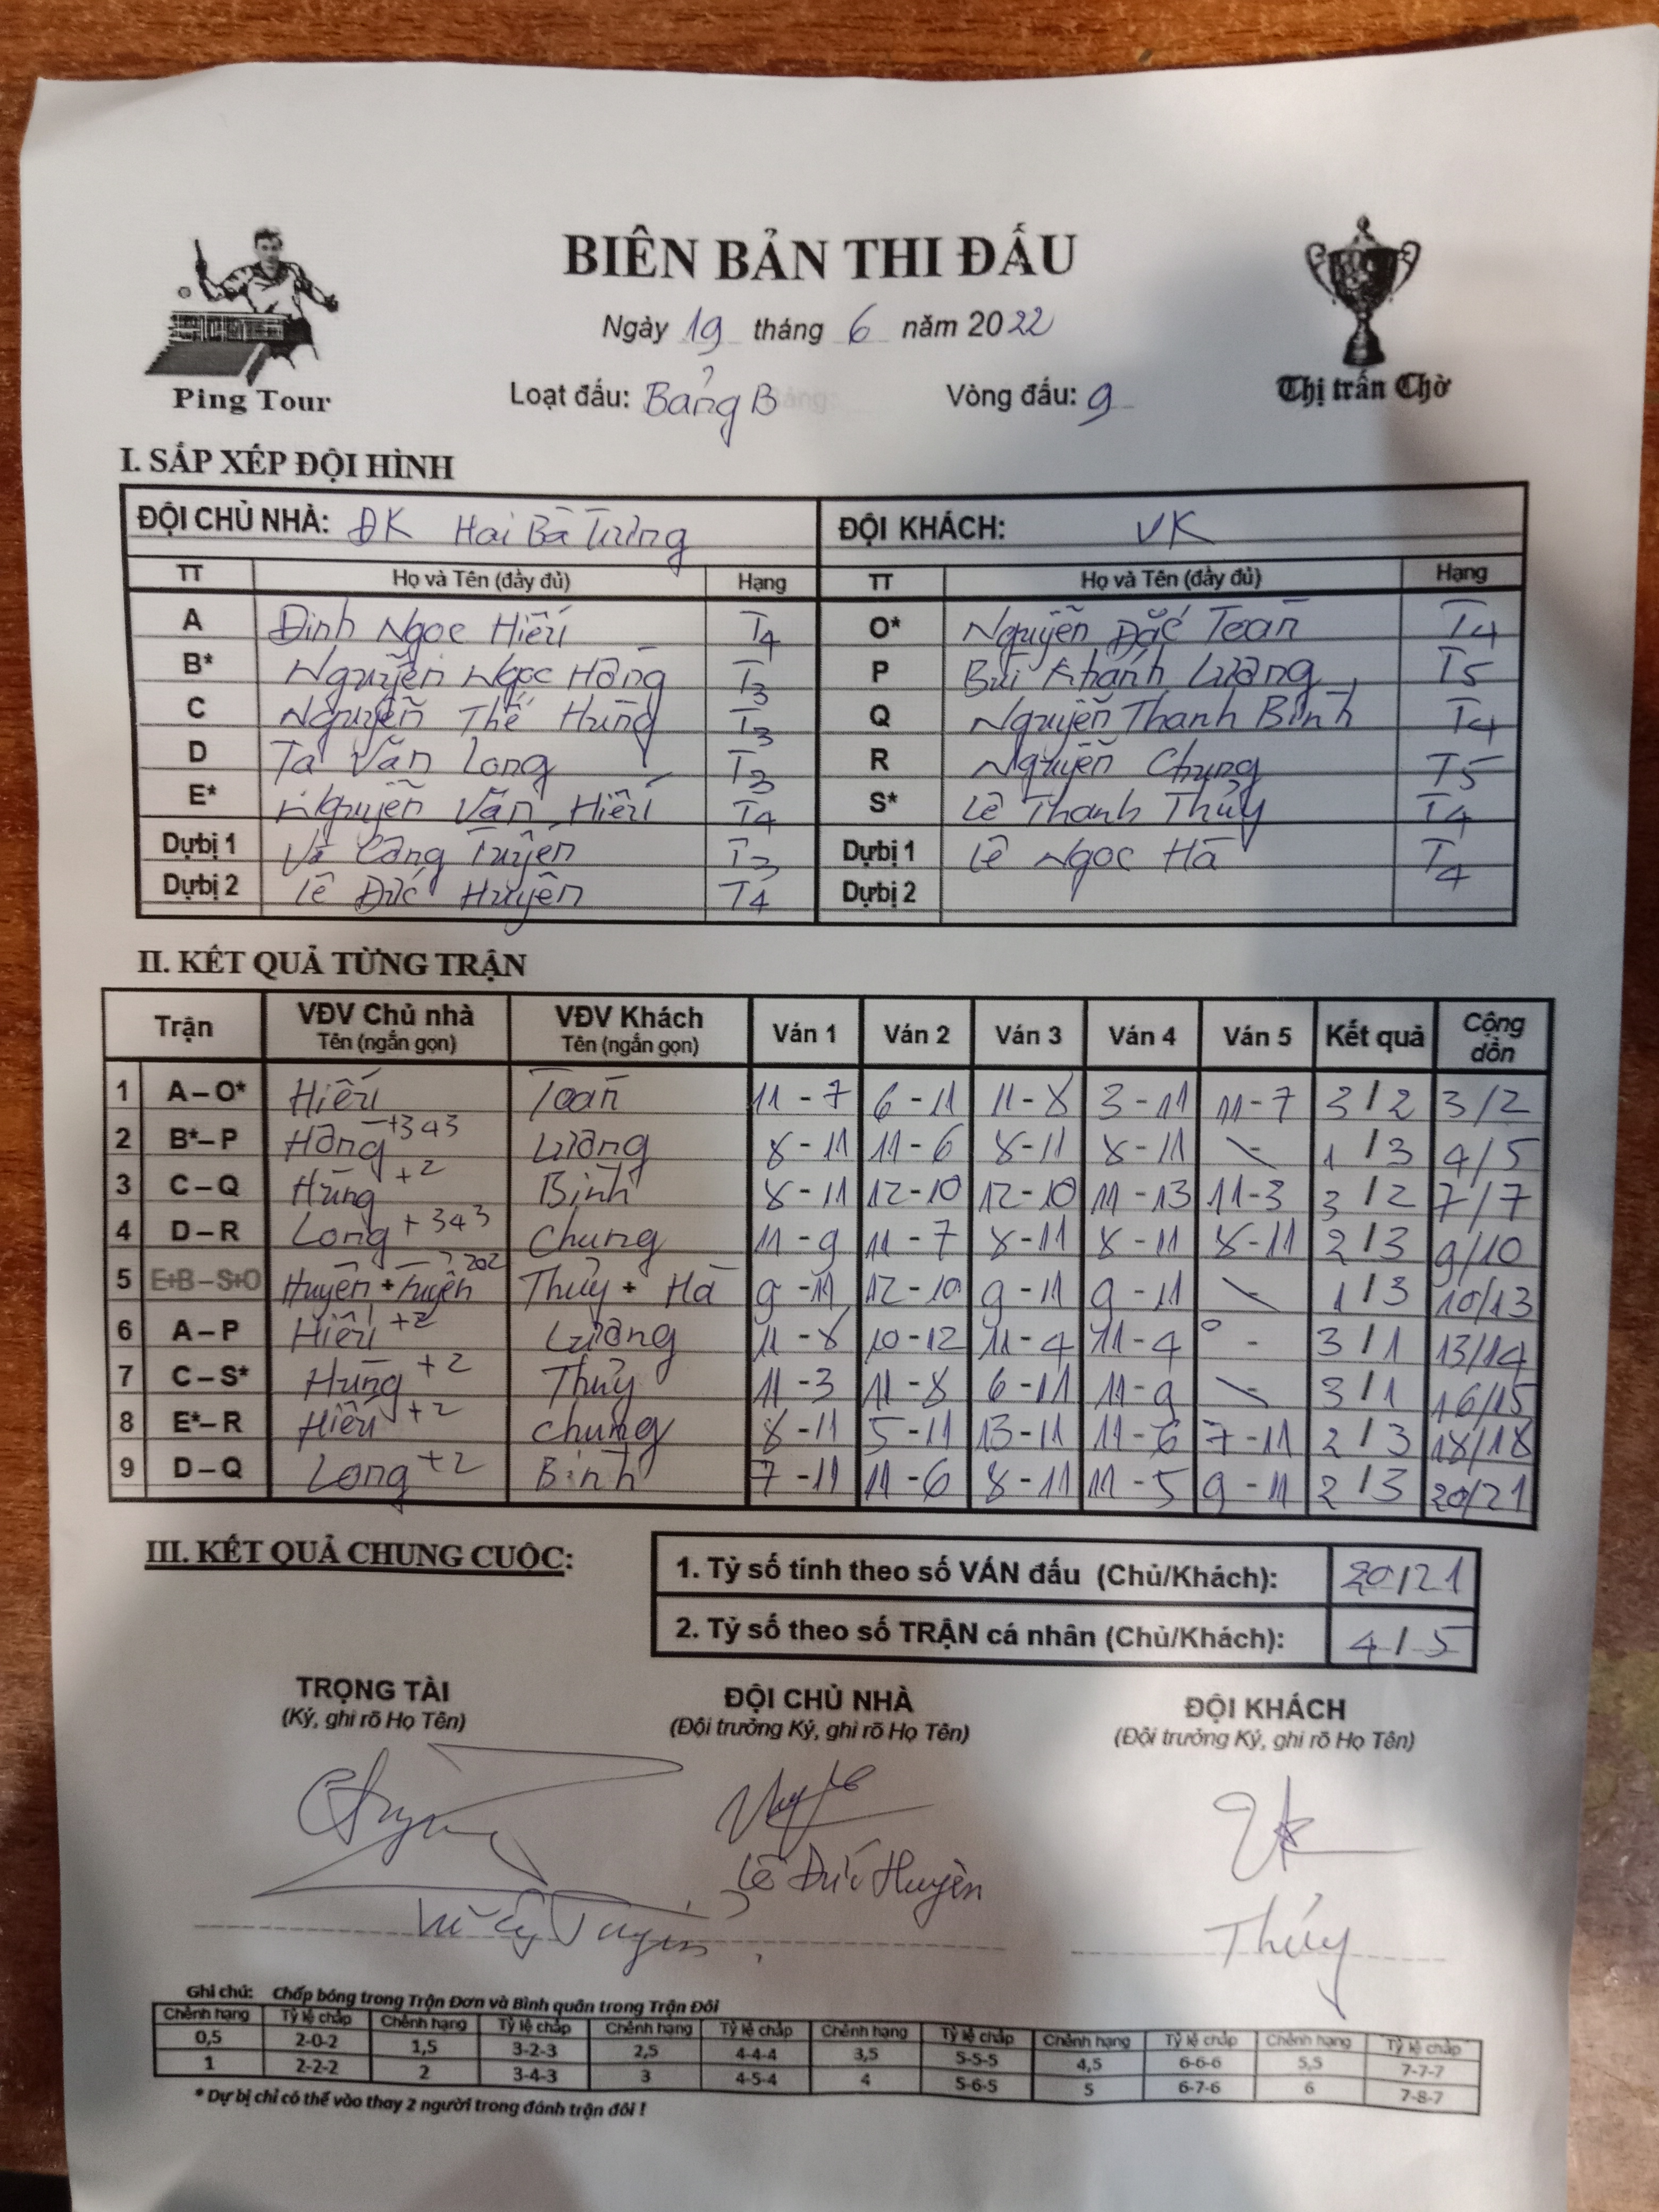 BIÊN BẢN THI ĐẤU
Ngày 19 tháng 6 năm 2022
Ping Tour
Thị trấn Chờ
Loạt đấu: Bảng B Vòng đấu: 9
I. SẮP XẾP ĐỘI HÌNH
ĐỘI CHỦ NHÀ: ĐK Hai Bà Trưng ĐỘI KHÁCH: VK
TT Họ và Tên (đầy đủ) Hạng TT Họ và Tên (đầy đủ) Hạng
A Đinh Ngọc Hiếu T4 O* Nguyễn Đắc Toàn T4
B* Nguyễn Ngọc Hồng T3 P Bùi Khánh Lương T5
C Nguyễn Thế Hùng T3 Q Nguyễn Thanh Bình T4
D Tạ Văn Long T3 R Nguyễn Chung T5
E* Nguyễn Văn Hiếu T4 S* Lê Thanh Thủy T4
Dự bị 1 Vũ Công Tuyên T3 Dự bị 1 Lê Ngọc Hà T4
Dự bị 2 Lê Đức Huyên T4 Dự bị 2
II. KẾT QUẢ TỪNG TRẬN
Trận VĐV Chủ nhà Tên (ngắn gọn) VĐV Khách Tên (ngắn gọn) Ván 1 Ván 2 Ván 3 Ván 4 Ván 5 Kết quả Cộng dồn
1 A – O* Hiếu Toàn 11 - 7 6 - 11 11 - 8 3 - 11 11 - 7 3 / 2 3/2
2 B* – P Hồng +343 Lương 8 - 11 11 - 6 8 - 11 8 - 11 - 1 / 3 4/5
3 C – Q Hùng +2 Bình 8 - 11 12 - 10 12 - 10 11 - 13 11 - 3 3 / 2 7/7
4 D – R Long +343 Chung 11 - 9 11 - 7 8 - 11 8 - 11 8 - 11 2 / 3 9/10
5 E+B – S+O Huyên + Tuyên 202 Thủy + Hà 9 - 11 12 - 10 9 - 11 9 - 11 - 1 / 3 10/13
6 A – P Hiếu +2 Lương 11 - 8 10 - 12 11 - 4 11 - 4 - 3 / 1 13/14
7 C – S* Hùng +2 Thủy 11 - 3 11 - 8 6 - 11 11 - 9 - 3 / 1 16/15
8 E* – R Hiếu +2 Chung 8 - 11 5 - 11 13 - 11 11 - 6 7 - 11 2 / 3 18/18
9 D – Q Long +2 Bình 7 - 11 11 - 6 8 - 11 11 - 5 9 - 11 2 / 3 20/21
III. KẾT QUẢ CHUNG CUỘC:
1. Tỷ số tính theo số VÁN đấu (Chủ/Khách): 20/21
2. Tỷ số theo số TRẬN cá nhân (Chủ/Khách): 4 / 5
TRỌNG TÀI ĐỘI CHỦ NHÀ ĐỘI KHÁCH
(Ký, ghi rõ Họ Tên) (Đội trưởng Ký, ghi rõ Họ Tên) (Đội trưởng Ký, ghi rõ Họ Tên)
Lê Đức Huyên
Thủy
Ghi chú: Chấp bóng trong Trận Đơn và Bình quân trong Trận Đôi
Chênh hạng Tỷ lệ chấp Chênh hạng Tỷ lệ chấp Chênh hạng Tỷ lệ chấp Chênh hạng Tỷ lệ chấp Chênh hạng Tỷ lệ chấp Chênh hạng Tỷ lệ chấp
0,5 2-0-2 1,5 3-2-3 2,5 4-4-4 3,5 5-5-5 4,5 6-6-6 5,5 7-7-7
1 2-2-2 2 3-4-3 3 4-5-4 4 5-6-5 5 6-7-6 6 7-8-7
* Dự bị chỉ có thể vào thay 2 người trong đánh trận đôi !